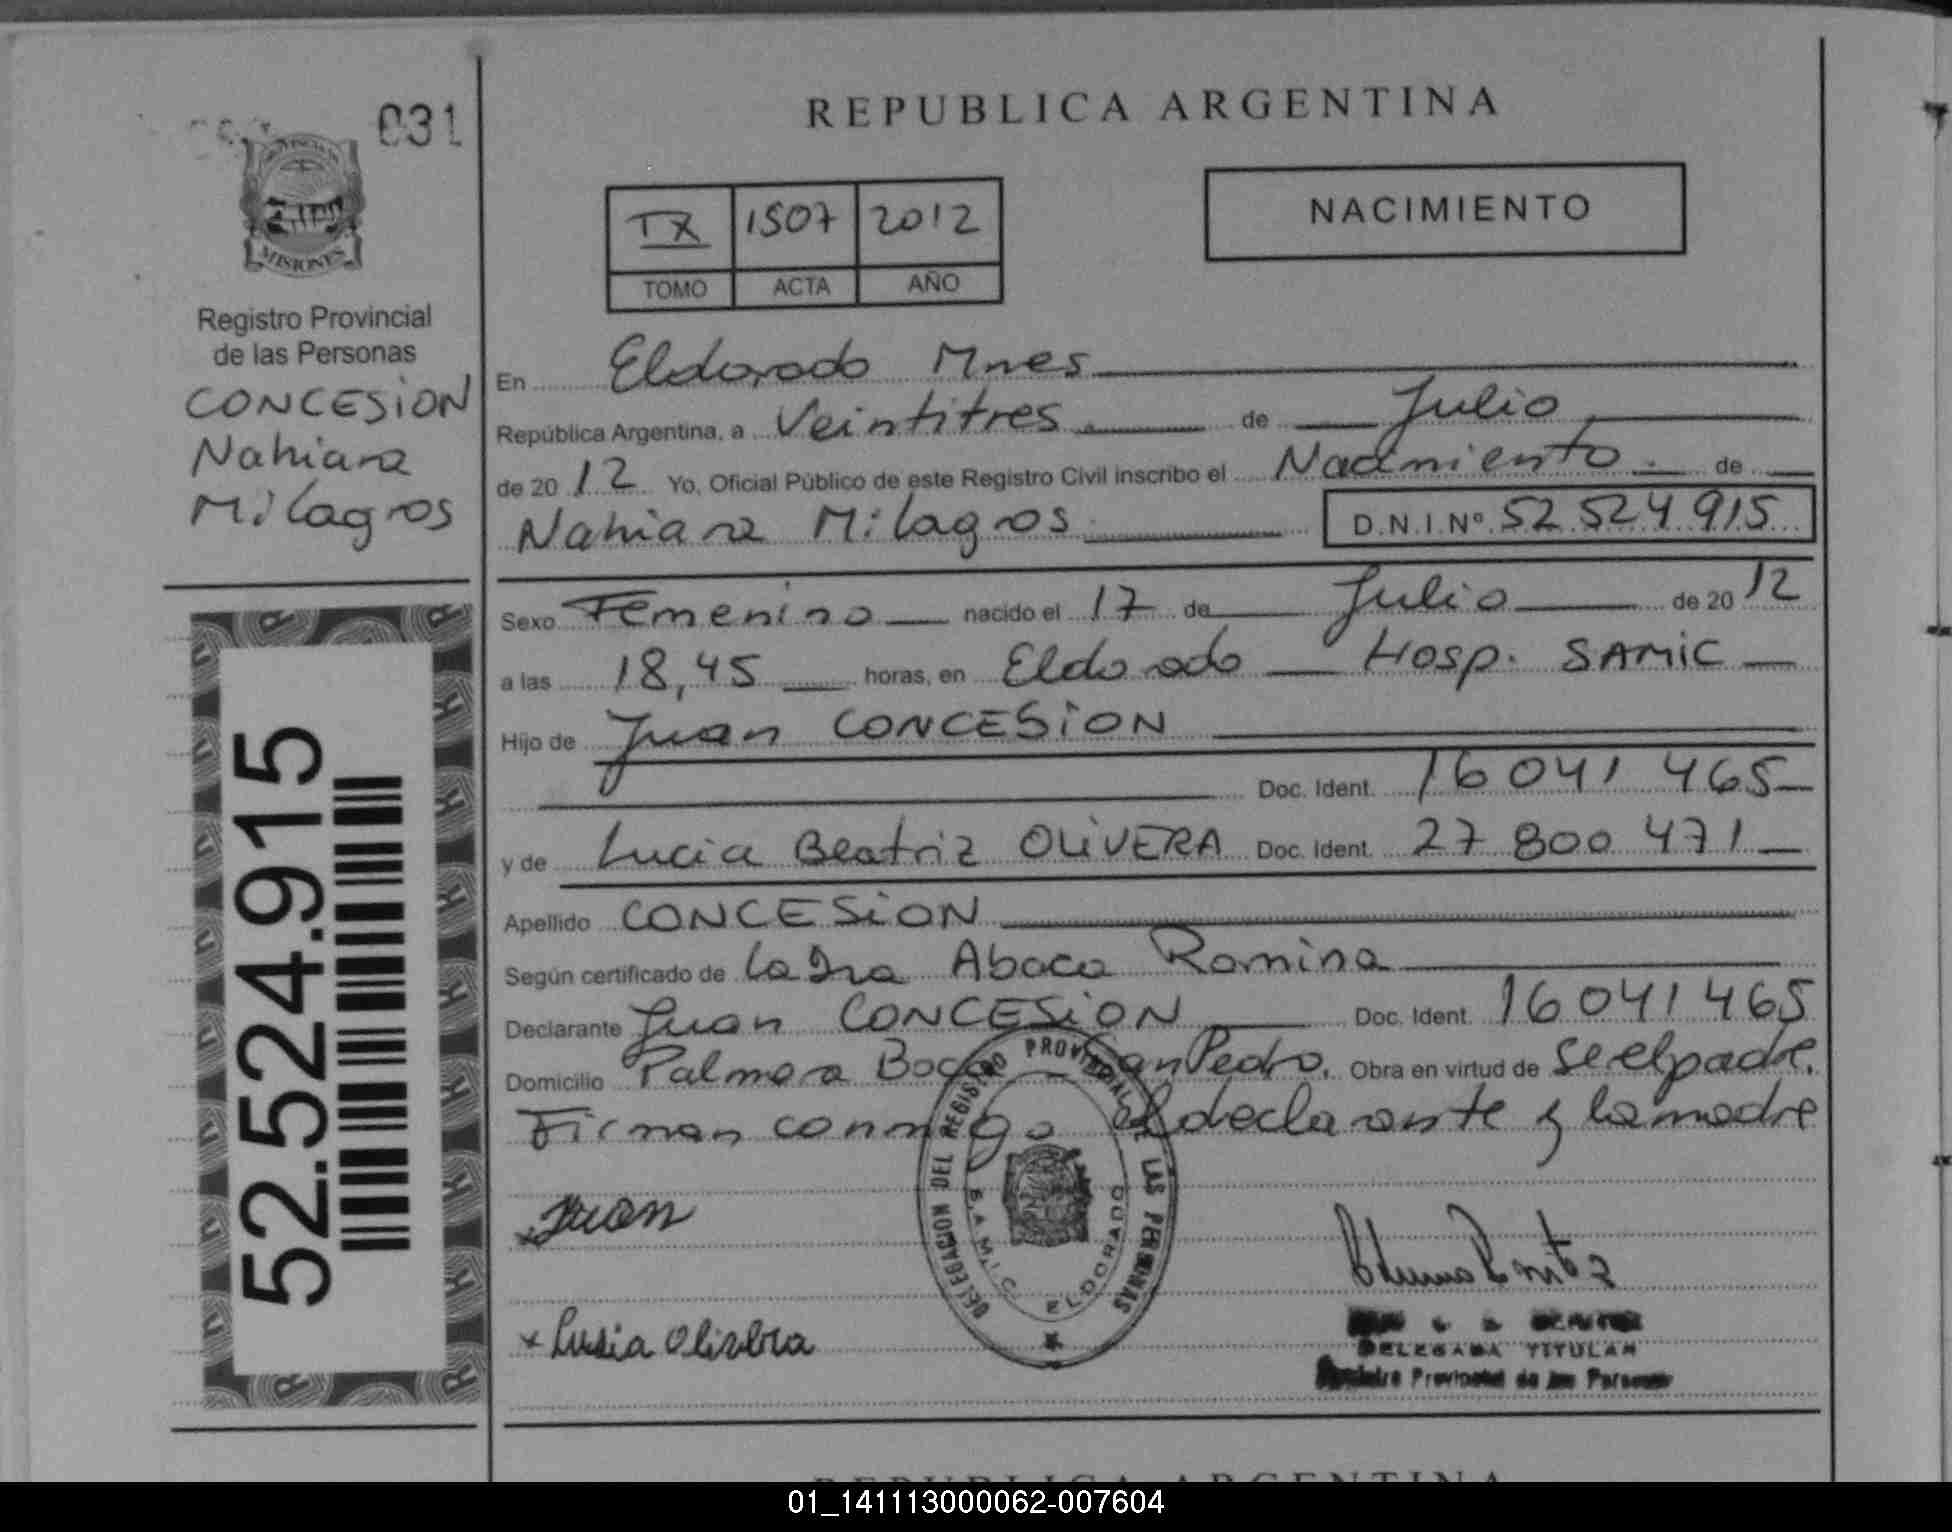 031
PROVINCIA DE
MISIONES
Registro Provincial
de las Personas
CONCESION
Nahiara
Milagros
52.524.915
REPUBLICA ARGENTINA
TX 1507 2012
TOMO ACTA AÑO
NACIMIENTO
En Eldorado Mnes
República Argentina, a Veintitres de Julio
de 20 12 Yo, Oficial Público de este Registro Civil inscribo el Nacimiento de
Nahiara Milagros D.N.I.Nº 52 524 915
Sexo Femenino nacido el 17 de Julio de 20 12
a las 18,45 horas, en Eldorado Hosp. SAMIC
Hijo de Juan CONCESION
Doc. Ident. 16 041 465
y de Lucia Beatriz OLIVERA Doc. Ident. 27 800 471
Apellido CONCESION
Según certificado de La Dra Abaca Romina
Declarante Juan CONCESION Doc. Ident. 16 041 465
Domicilio Palmera Boca San Pedro. Obra en virtud de Se el padre.
Firman conmigo el declarante y la madre
DELEGACION DEL REGISTRO PROVINCIAL DE LAS PERSONAS
S.A.M.I.C. ELDORADO
x Juan
x Lusia Olisbra
DELEGADA TITULAR
Registro Provincial de las Personas
REPUBLICA ARGENTINA
01_141113000062-007604